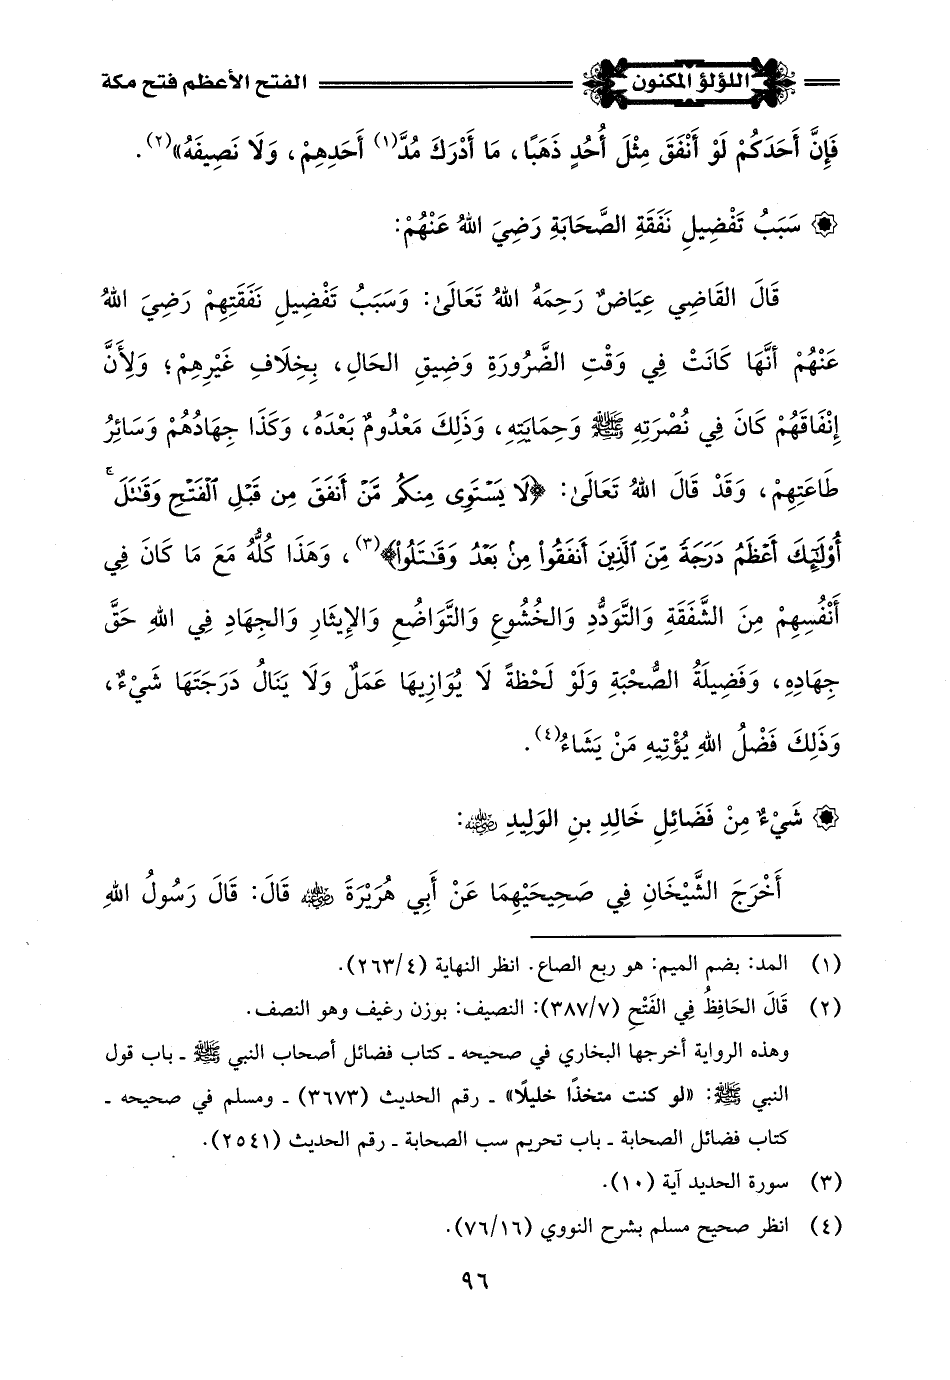 اللؤلؤ المكنون الفتح الأعظم فتح مكة
فَإِنَّ أَحَدَكُمْ لَوْ أَنْفَقَ مِثْلَ أُحُدٍ ذَهَبًا، مَا أَدْرَكَ مُدَّ(١) أَحَدِهِمْ، وَلَا نَصِيفَهُ»(٢).
سَبَبُ تَفْضِيلِ نَفَقَةِ الصَّحَابَةِ رَضِيَ اللهُ عَنْهُمْ:
قَالَ القَاضِي عِيَاضٌ رَحِمَهُ اللهُ تَعَالَىٰ: وَسَبَبُ تَفْضِيلِ نَفَقَتِهِمْ رَضِيَ اللهُ
عَنْهُمْ أنَّهَا كَانَتْ فِي وَقْتِ الضَّرُورَةِ وَضِيقِ الحَالِ، بِخِلَافِ غَيْرِهِمْ؛ وَلِأَنَّ
إِنْفَاقَهُمْ كَانَ فِي نُصْرَتِهِ ﷺ وَحِمَايَتِهِ، وَذَلِكَ مَعْدُومٌ بَعْدَهُ، وَكَذَا جِهَادُهُمْ وَسَائِرُ
طَاعَتِهِمْ، وَقَدْ قَالَ اللهُ تَعَالَىٰ: ﴿لَا يَسْتَوِى مِنكُم مَّنْ أَنفَقَ مِن قَبْلِ ٱلْفَتْحِ وَقَـٰتَلَ ۚ
أُوْلَـٰٓئِكَ أَعْظَمُ دَرَجَةً مِّنَ ٱلَّذِينَ أَنفَقُواْ مِنۢ بَعْدُ وَقَـٰتَلُواْ﴾(٣)، وَهَذَا كُلُّهُ مَعَ مَا كَانَ فِي
أَنْفُسِهِمْ مِنَ الشَّفَقَةِ وَالتَّوَدُّدِ وَالخُشُوعِ وَالتَّوَاضُعِ وَالإِيثَارِ وَالجِهَادِ فِي اللهِ حَقَّ
جِهَادِهِ، وَفَضِيلَةُ الصُّحْبَةِ وَلَوْ لَحْظَةً لَا يُوَازِيهَا عَمَلٌ وَلَا يَنَالُ دَرَجَتَهَا شَيْءٌ،
وَذَلِكَ فَضْلُ اللهِ يُؤْتِيهِ مَنْ يَشَاءُ(٤).
شَيْءٌ مِنْ فَضَائِلِ خَالِدِ بنِ الوَلِيدِ رضي الله عنه:
أَخْرَجَ الشَّيْخَانِ فِي صَحِيحَيْهِمَا عَنْ أَبِي هُرَيْرَةَ رضي الله عنه قَالَ: قَالَ رَسُولُ اللهِ
(١) المد: بضم الميم: هو ربع الصاع. انظر النهاية (٢٦٣/٤).
(٢) قَالَ الحَافِظُ فِي الفَتْحِ (٣٨٧/٧): النصيف: بوزن رغيف وهو النصف.
وهذه الرواية أخرجها البخاري في صحيحه ـ كتاب فضائل أصحاب النبي ﷺ ـ باب قول
النبي ﷺ: «لو كنت متخذًا خليلًا» ـ رقم الحديث (٣٦٧٣) ـ ومسلم في صحيحه ـ
كتاب فضائل الصحابة ـ باب تحريم سب الصحابة ـ رقم الحديث (٢٥٤١).
(٣) سورة الحديد آية (١٠).
(٤) انظر صحيح مسلم بشرح النووي (٧٦/١٦).
٩٦